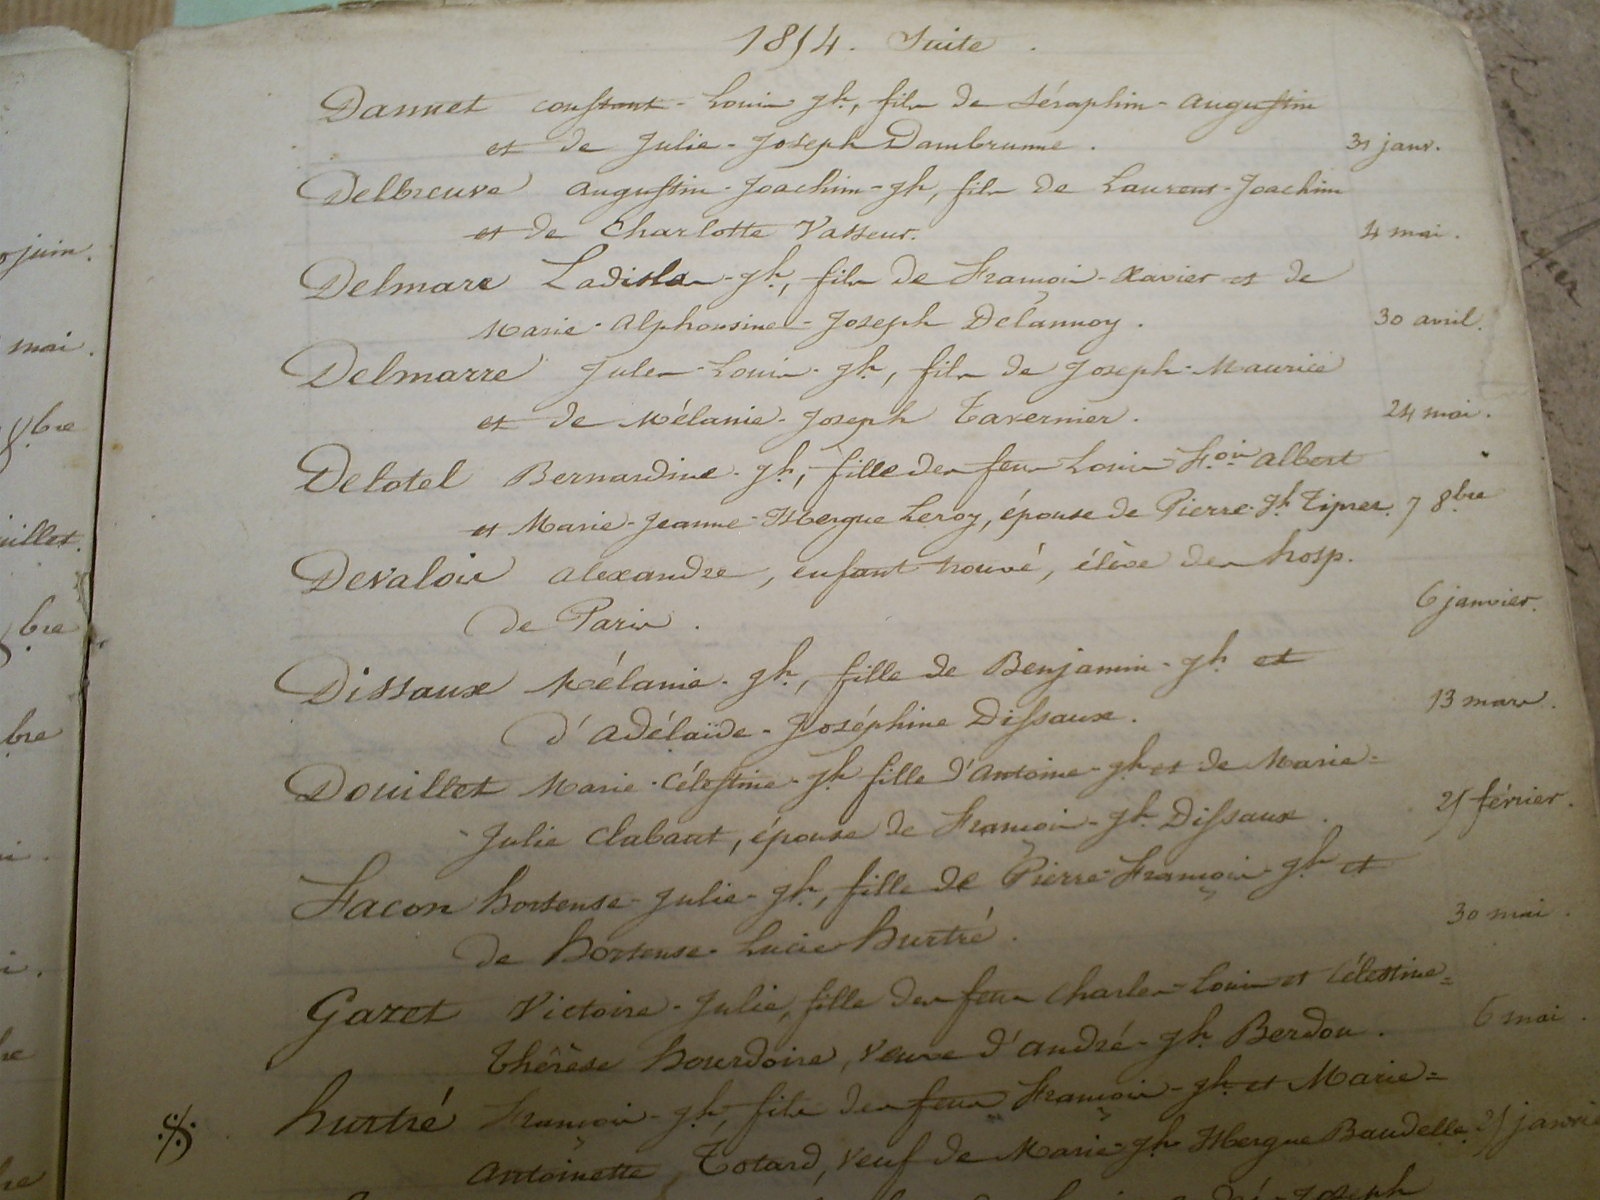 1854. Suite.
Dannet Constant-Louis-Jh, fils de Séraphin-Augustin
et de Julie-Joseph Dambrunne. 31 janv.
Delbreuve Augustin-Joachim-Jh, fils de Laurent-Joachim
et de Charlotte Vasseur. 4 mai.
Delmare Ladislas-Jh, fils de François-Xavier et de
Marie-Alphonsine-Joseph Delannoy. 30 avril.
Delmarre Jules-Louis-Jh, fils de Joseph-Maurice
et de Mélanie-Joseph Tavernier. 24 mai.
Delotel Bernardine-Jh, fille des feus Louis-Fois Albert
et Marie-Jeanne-Isbergue Leroy, épouse de Pierre-Jh Tiprez. 7 8bre
Devalois Alexandre, enfant trouvé, élève des hosp.
de Paris. 6 janvier.
Dissaux Mélanie-Jh, fille de Benjamin-Jh et
d'Adélaïde-Joséphine Dissaux. 13 mars.
Douillet Marie-Célestine-Jh fille d'Antoine-Jh et de Marie=
Julie Clabaut, épouse de François-Jh Dissaux. 25 février.
Facon Hortense-Julie-Jh, fille de Pierre-François-Jh et
de Hortense-Lucie Hurtré. 30 mai.
Gazet Victoire-Julie, fille des feus Charles-Louis et Célestine=
Thérèse Hourdoire, veuve d'André-Jh Berdou. 6 mai.
Hurtré François-Jh, fils des feus François-Jh et Marie=
Antoinette Totard, veuf de Marie-Jh Isbergue Baudelle. 25 janvie
juin.
mai.
bre
uillet.
bre
bre